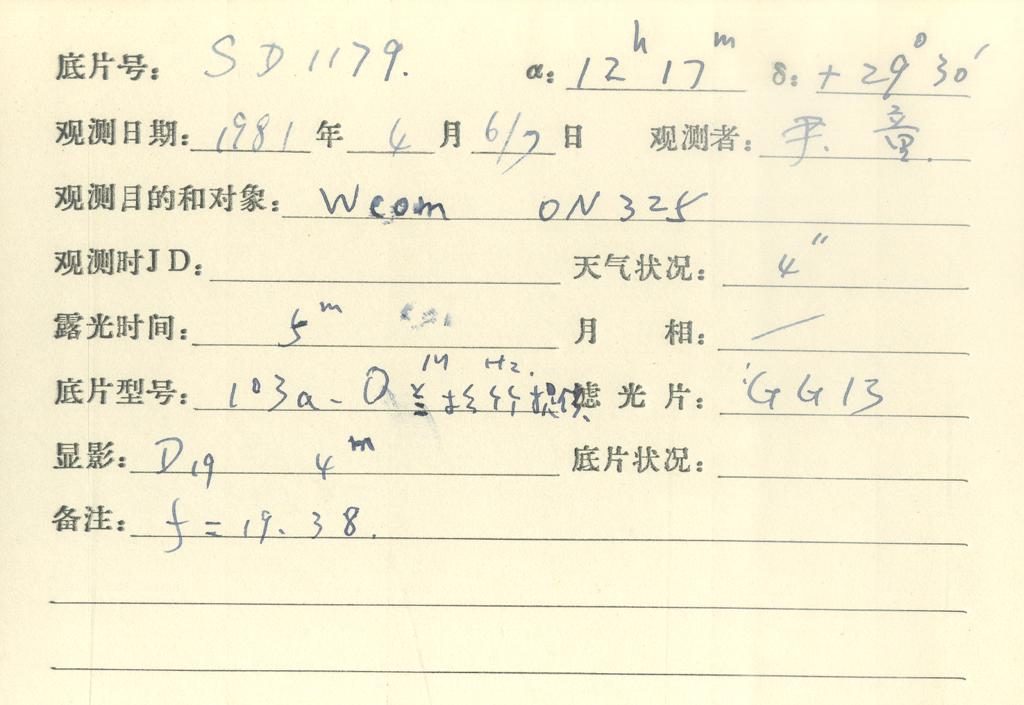 底片号: SD1179. α: 12h 17m δ: +29° 30′
观测日期: 1981 年 4 月 6/7 日 观测者: 童.
观测目的和对象: Wcom ON 325
观测时JD: 天气状况: 4″
露光时间: 5m 月 相: /
底片型号: 103a-O H2. 滤光片: GG13
显影: D19 4m 底片状况:
备注: f=19.38.